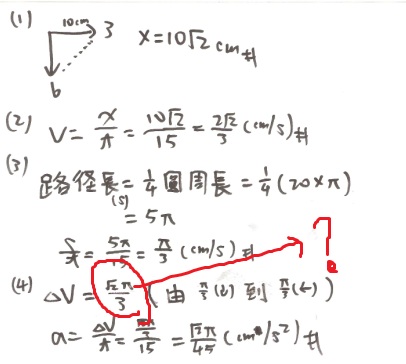 (1)
10cm
3
x=10√2 cm #
6
(2) V = x/t = 10√2/15 = 2√2/3 (cm/s) #
(3)
路徑長 = 1/4 圓周長 = 1/4 (20×π)
(S)
= 5π
S/t = 5π/15 = π/3 (cm/s) #
?
(4) ΔV = √2π/3 ( 由 π/3 (↓) 到 π/3 (←) )
a = ΔV/t = (√2π/3)/15 = √2π/45 (cm/s²) #